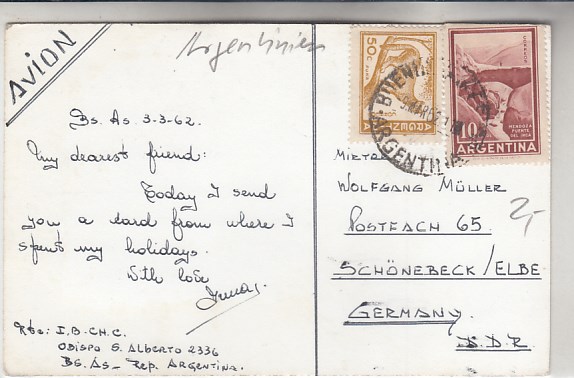 AVION
Argentinien
Bs. As. 3-3-62.
My dearest friend:
Today I send
you a card from where I
spent my holidays.
With love
Rte: I.B-CH.C.
OBISPO S. ALBERTO 2336
BS. AS_ REP. ARGENTINA.
50 C.
ARGENTINA
10
MENDOZA
PUENTE
DEL INCA
ARGENTINA
BUENOS AIRES
ARGENTINA
WOLFGANG MÜLLER
POSTFACH 65.
SCHÖNEBECK/ELBE
GERMANY.
D.D.R.
2,-